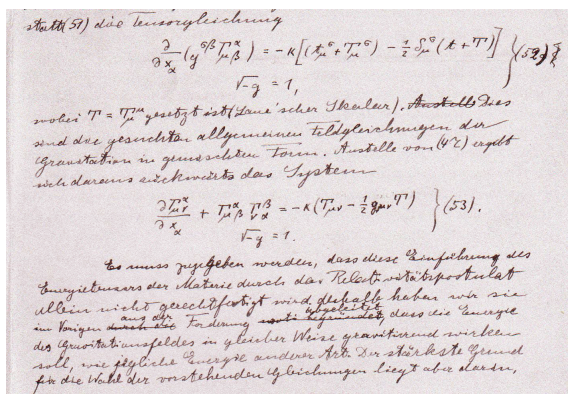 statt (51) die Tensorgleichung
∂/∂x_α (g^{σβ} Γ^α_{μβ}) = −κ[(t_μ^σ + T_μ^σ) − ½ δ_μ^σ (t + T)] } (52)
√−g = 1,
wobei T = T_μ^μ gesetzt ist (Laue'scher Skalar). Anstelle Dies
sind die gesuchten allgemeinen Feldgleichungen der
Gravitation in gemischter Form. Anstelle von (47) ergibt
sich daraus rückwärts das System
∂Γ^α_{μν}/∂x_α + Γ^α_{μβ} Γ^β_{να} = −κ(T_{μν} − ½ g_{μν} T) } (53).
√−g = 1.
Es muss zugegeben werden, dass diese Einführung des
Energietensors der Materie durch das Relativitätspostulat
allein nicht gerechtfertigt wird; deshalb haben wir sie
im Vorigen durch die aus der Forderung abgeleitet, dass die Energie
des Gravitationsfeldes in gleicher Weise gravitierend wirken
soll, wie jegliche Energie anderer Art. Der stärkste Grund
für die Wahl der vorstehenden Gleichungen liegt aber darin,